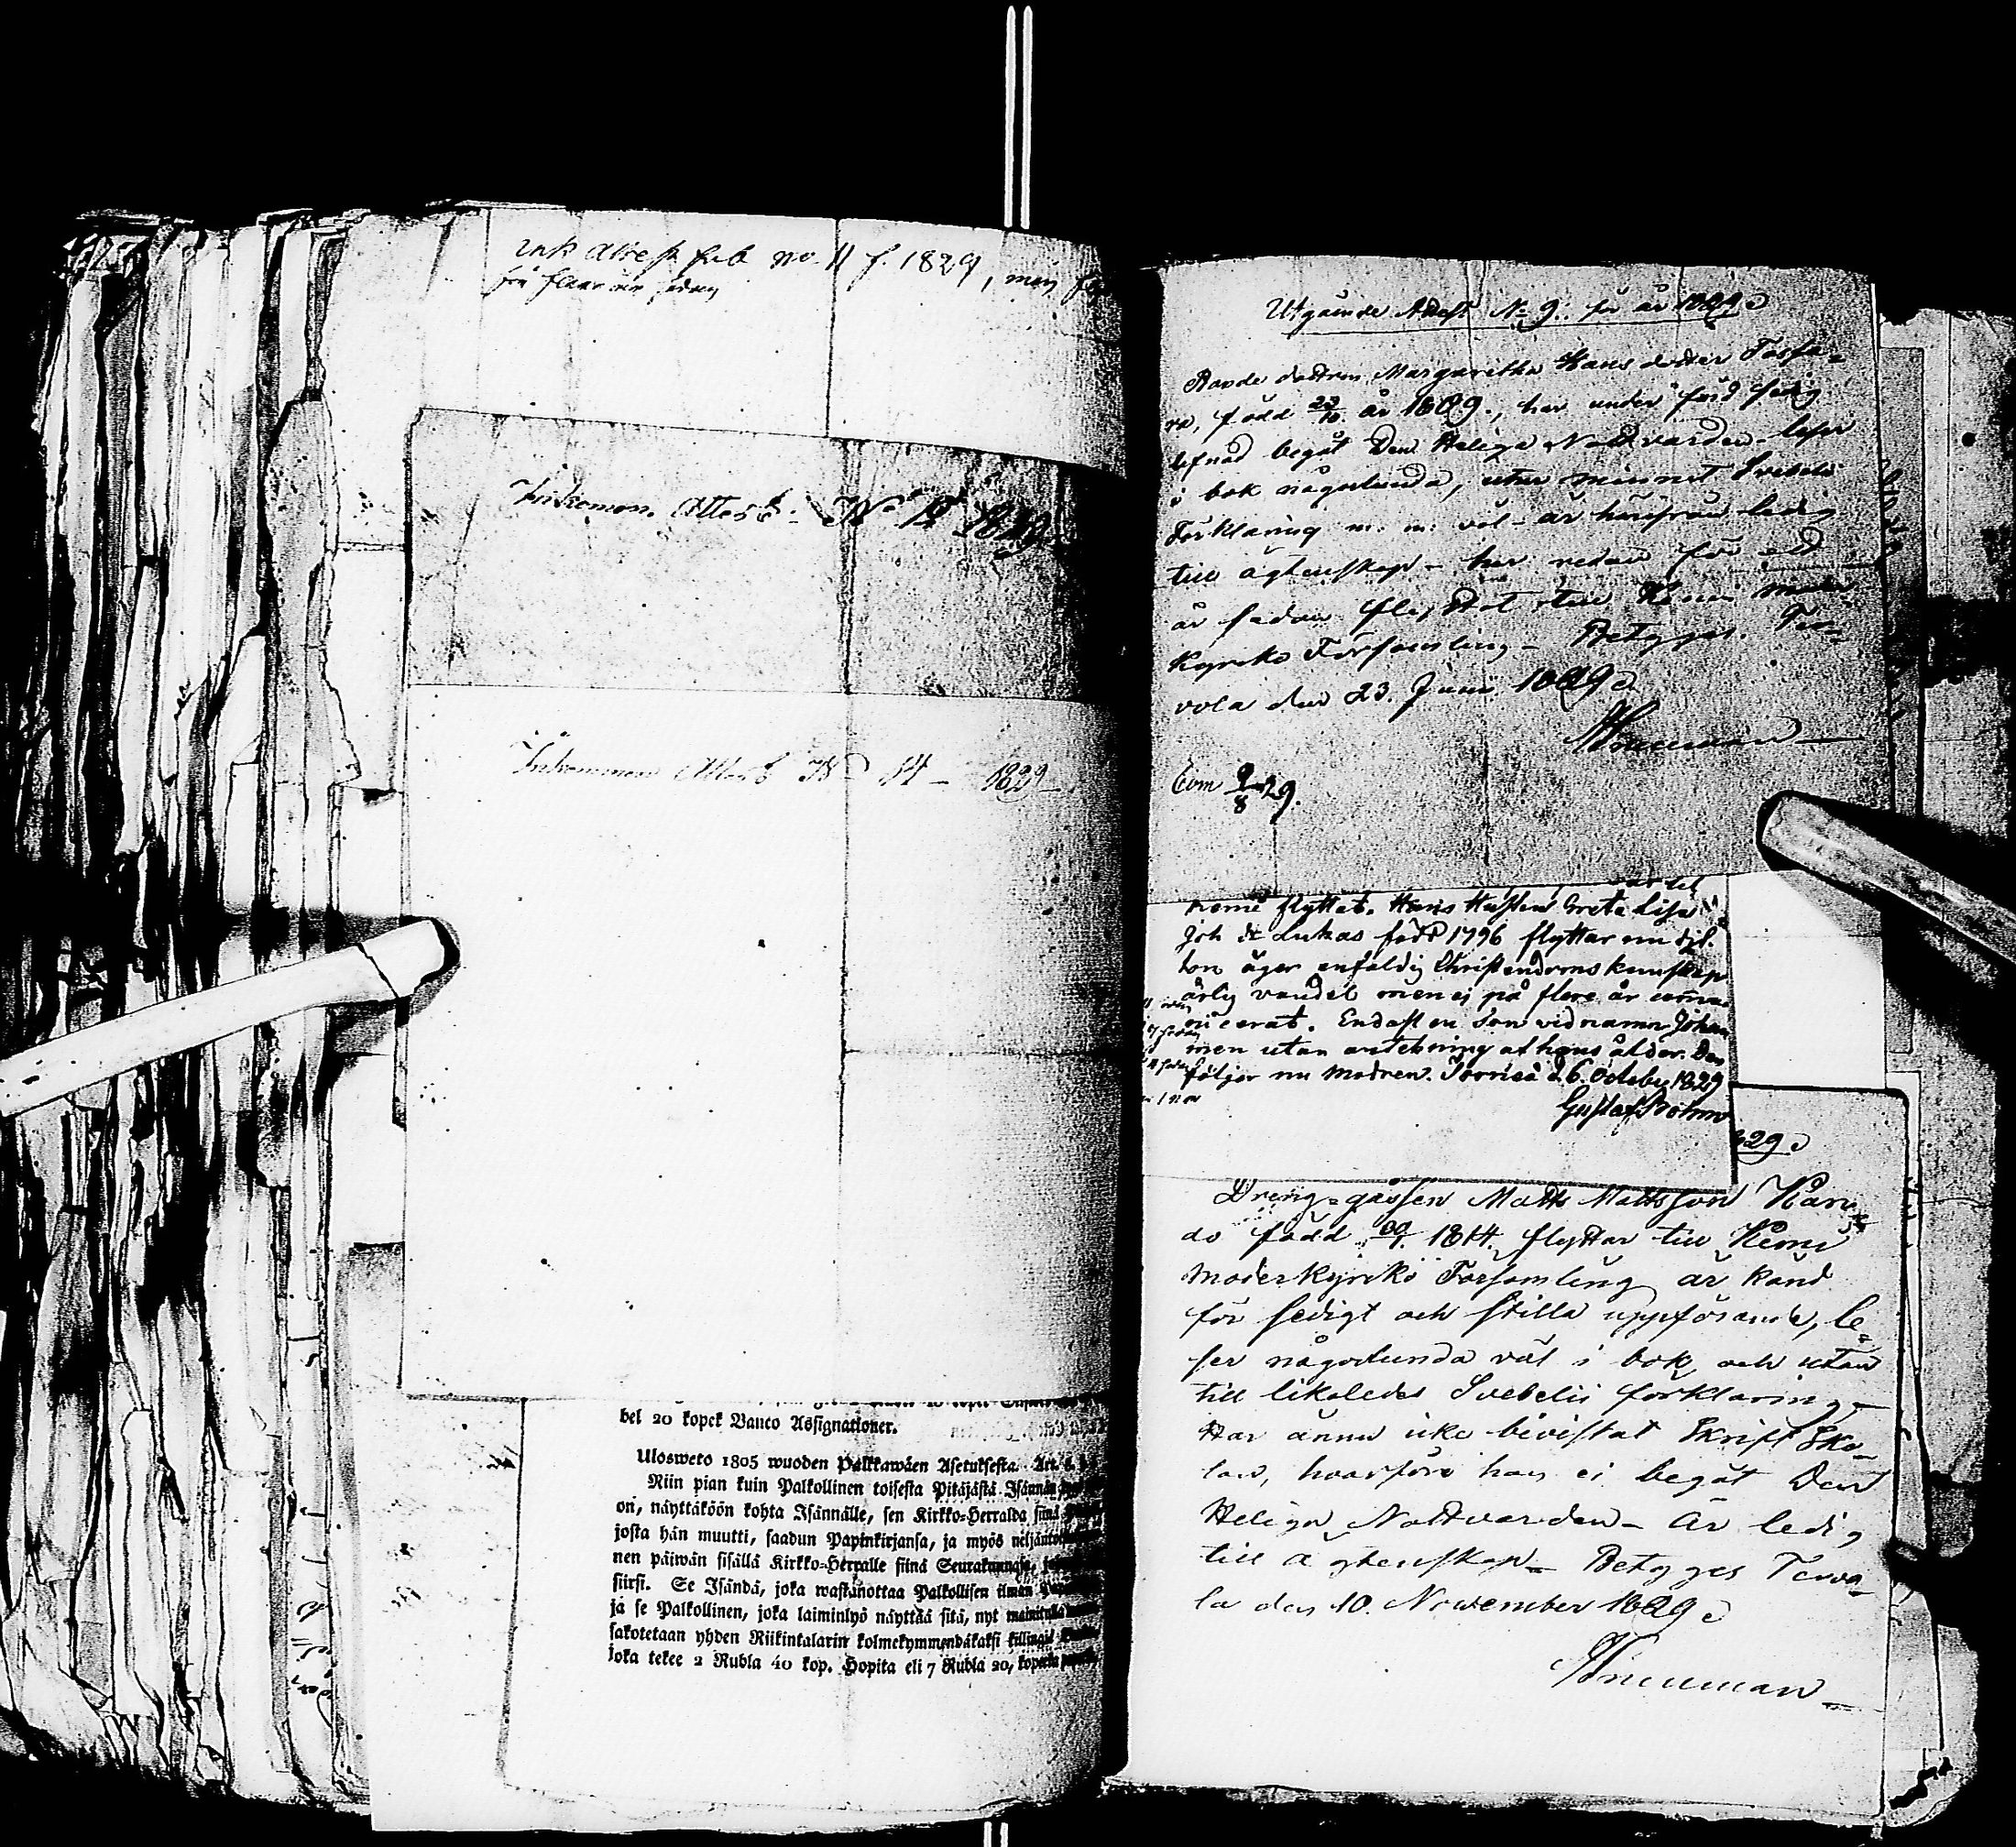 Ink Attest sub no. 11 f. 1829, men
Inkommen. Attest. No 12 1829
Inkommen Attest No 14 – 1829 –
bel 20 kopek Banco Assignationer.
Ulosweto 1805 wuoden Palkkawäen Asetuksesta. Art.
Niin pian kuin Palkollinen toisesta Pitäjästä Isännän
on, näyttäköön kohta Isännälle, sen Kirkko-Herralda siinä
josta hän muutti, saadun Papinkirjansa, ja myös neljäntoista
nen päiwän sisällä Kirkko-Herralle siinä Seurakunnassa,
siirsi. Se Isändä, joka wastanottaa Palkollisen ilman
ja se Palkollinen, joka laiminlyö näyttää sitä, nyt mainitulla
sakotetaan yhden Riikintalarin kolmekymmendäkaksi killingiä
joka tekee 2 Rubla 40 kop. Hopita eli 7 Rubla 20, kopekka
Utgående Attest No 9. för år 1829
Bonde dottren Margaretha Hans dotter
född 23/10 år 1809., har under förd sedig
lefnad begåt Den Heliga Nattvarden – läser
i bok någorlunda, utur minnet Svebelii
Förklaring m. m. väl – är härifrån ledig
till ägtenskap – har redan för ett
år sedan flyttat till Kemi Moder
Kyrko Församling – Betyges. Ter-
vola den 23. Juni 1829
Com 9/8 29.
Kemi flyttat. Hans Hustru Greta Lisa
Joh dr Lukas född 1796 flyttar nu dit.
hon äger enfaldig Christendoms kunskap
ärlig vandel men ej på flere år commu
nicerat. Endast en Son vid namn Johan
men utan anteckning af hans ålder. Den
följer nu Modren. Torneå d. 6. October 1829
Gustaf Bohm
829
Dreng-gåssen Matts Mattsson Kan-
do född 1814. flyttar till Kemi
Moderkyrko Församling är känd
för sedigt och stilla uppförande, lä-
ser någorlunda väl i bok, och utan
till likaledes Svebelii förklaring –
Har ännu icke bevistat Skrift Sko-
lan, hvarföre han ei begåt Den
Heliga Nattvarden – Är ledig
till ägtenskap – Betyges Tervo-
la den 10. November 1829